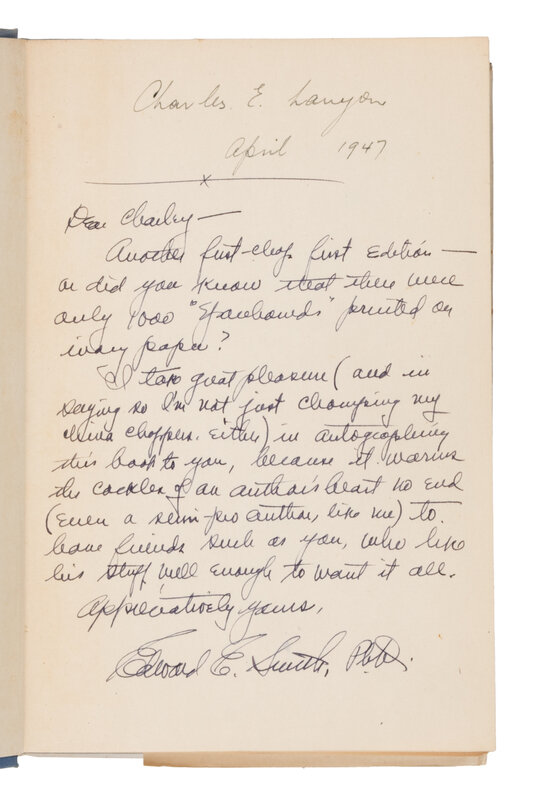 Charles E. Lanyon
April 1947
x
Dear Charley —
Another first-chop first edition —
or did you know that there were
only 1000 "Spacehounds" printed on
ivory paper?
I take great pleasure (and in
saying so I'm not just chomping my
china choppers, either) in autographing
this book to you, because it warms
the cockles of an author's heart no end
(even a semi-pro author, like me) to
have friends such as you, who like
his stuff well enough to want it all.
Appreciatively yours,
Edward E. Smith, Ph.D.